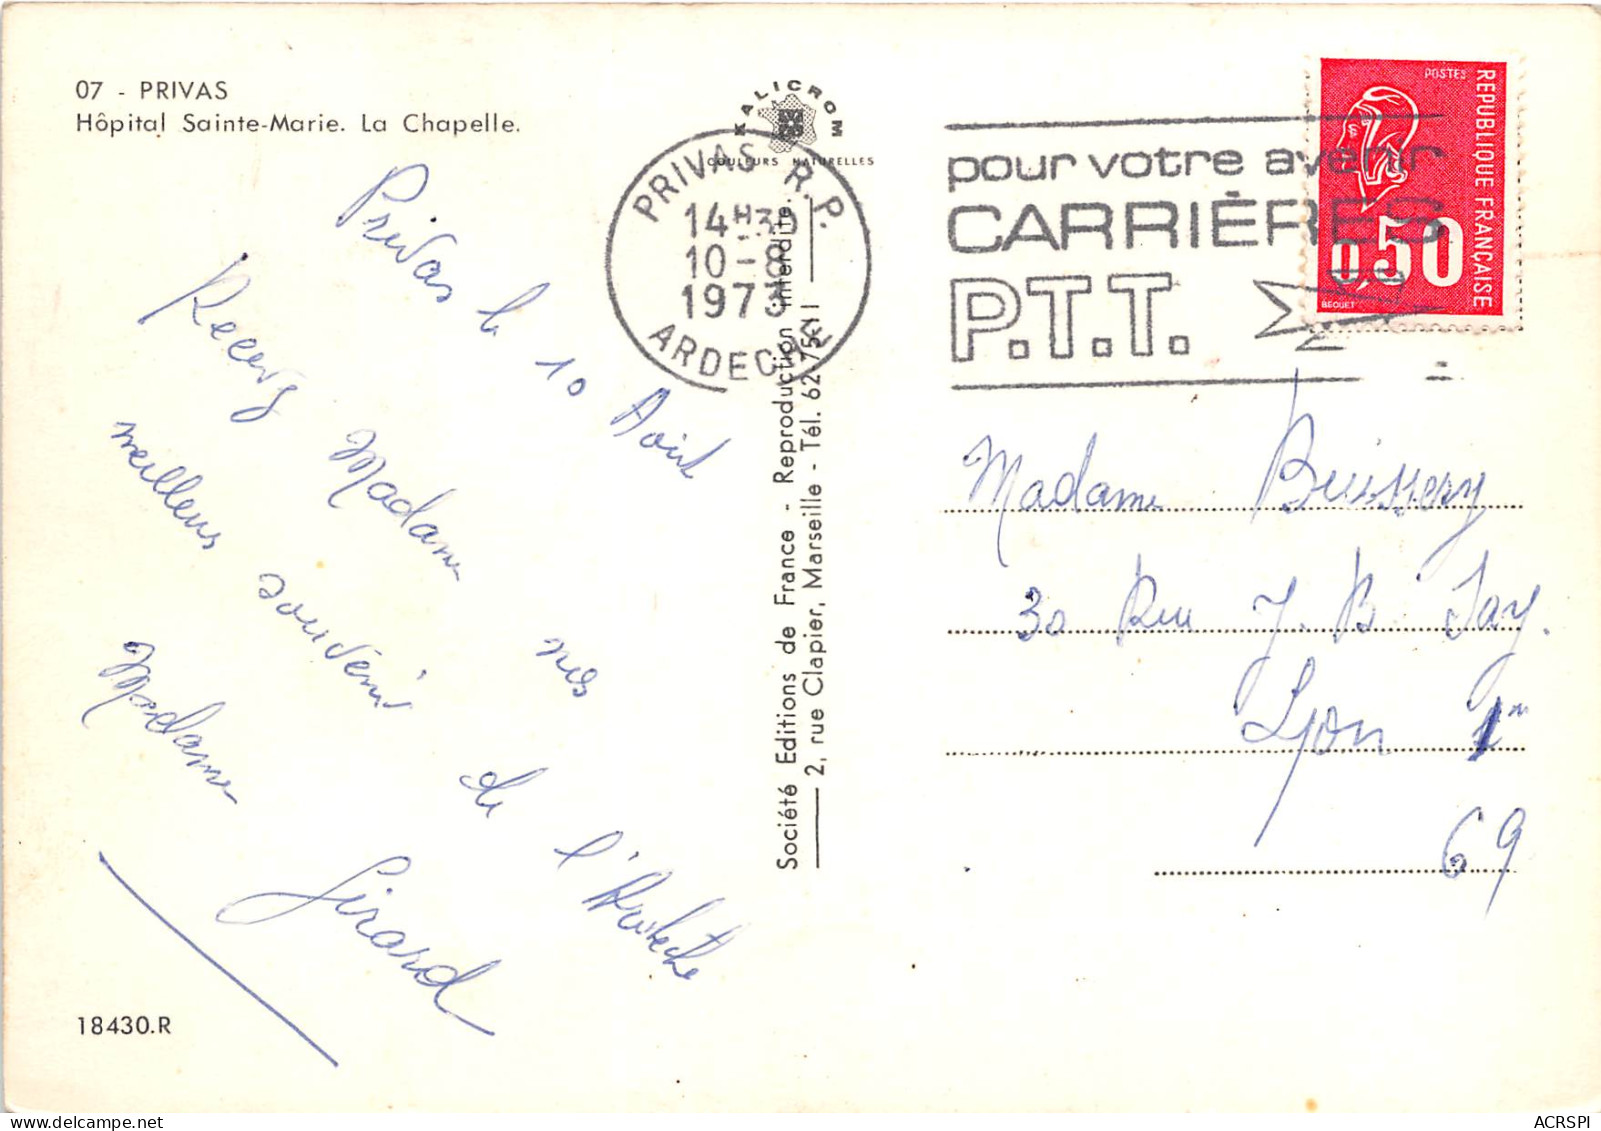 07 - PRIVAS
Hôpital Sainte-Marie. La Chapelle.
Privas le 10 Août
Recevez Madame nos
meilleurs souvenir de l'Ardèche
Madame Girard
18430.R
KALICROM
COULEURS NATURELLES
Société Editions de France - Reproduction interdite.
2, rue Clapier, Marseille - Tél. 62-75-11
PRIVAS R.P.
14H30
10-8
1973
ARDECHE
pour votre avenir
CARRIÈRES
P.T.T.
POSTES
REPUBLIQUE FRANÇAISE
0,50
BEQUET
Madame Buissery
30 Rue J. B. Say.
Lyon 1er
69
ACRSPI